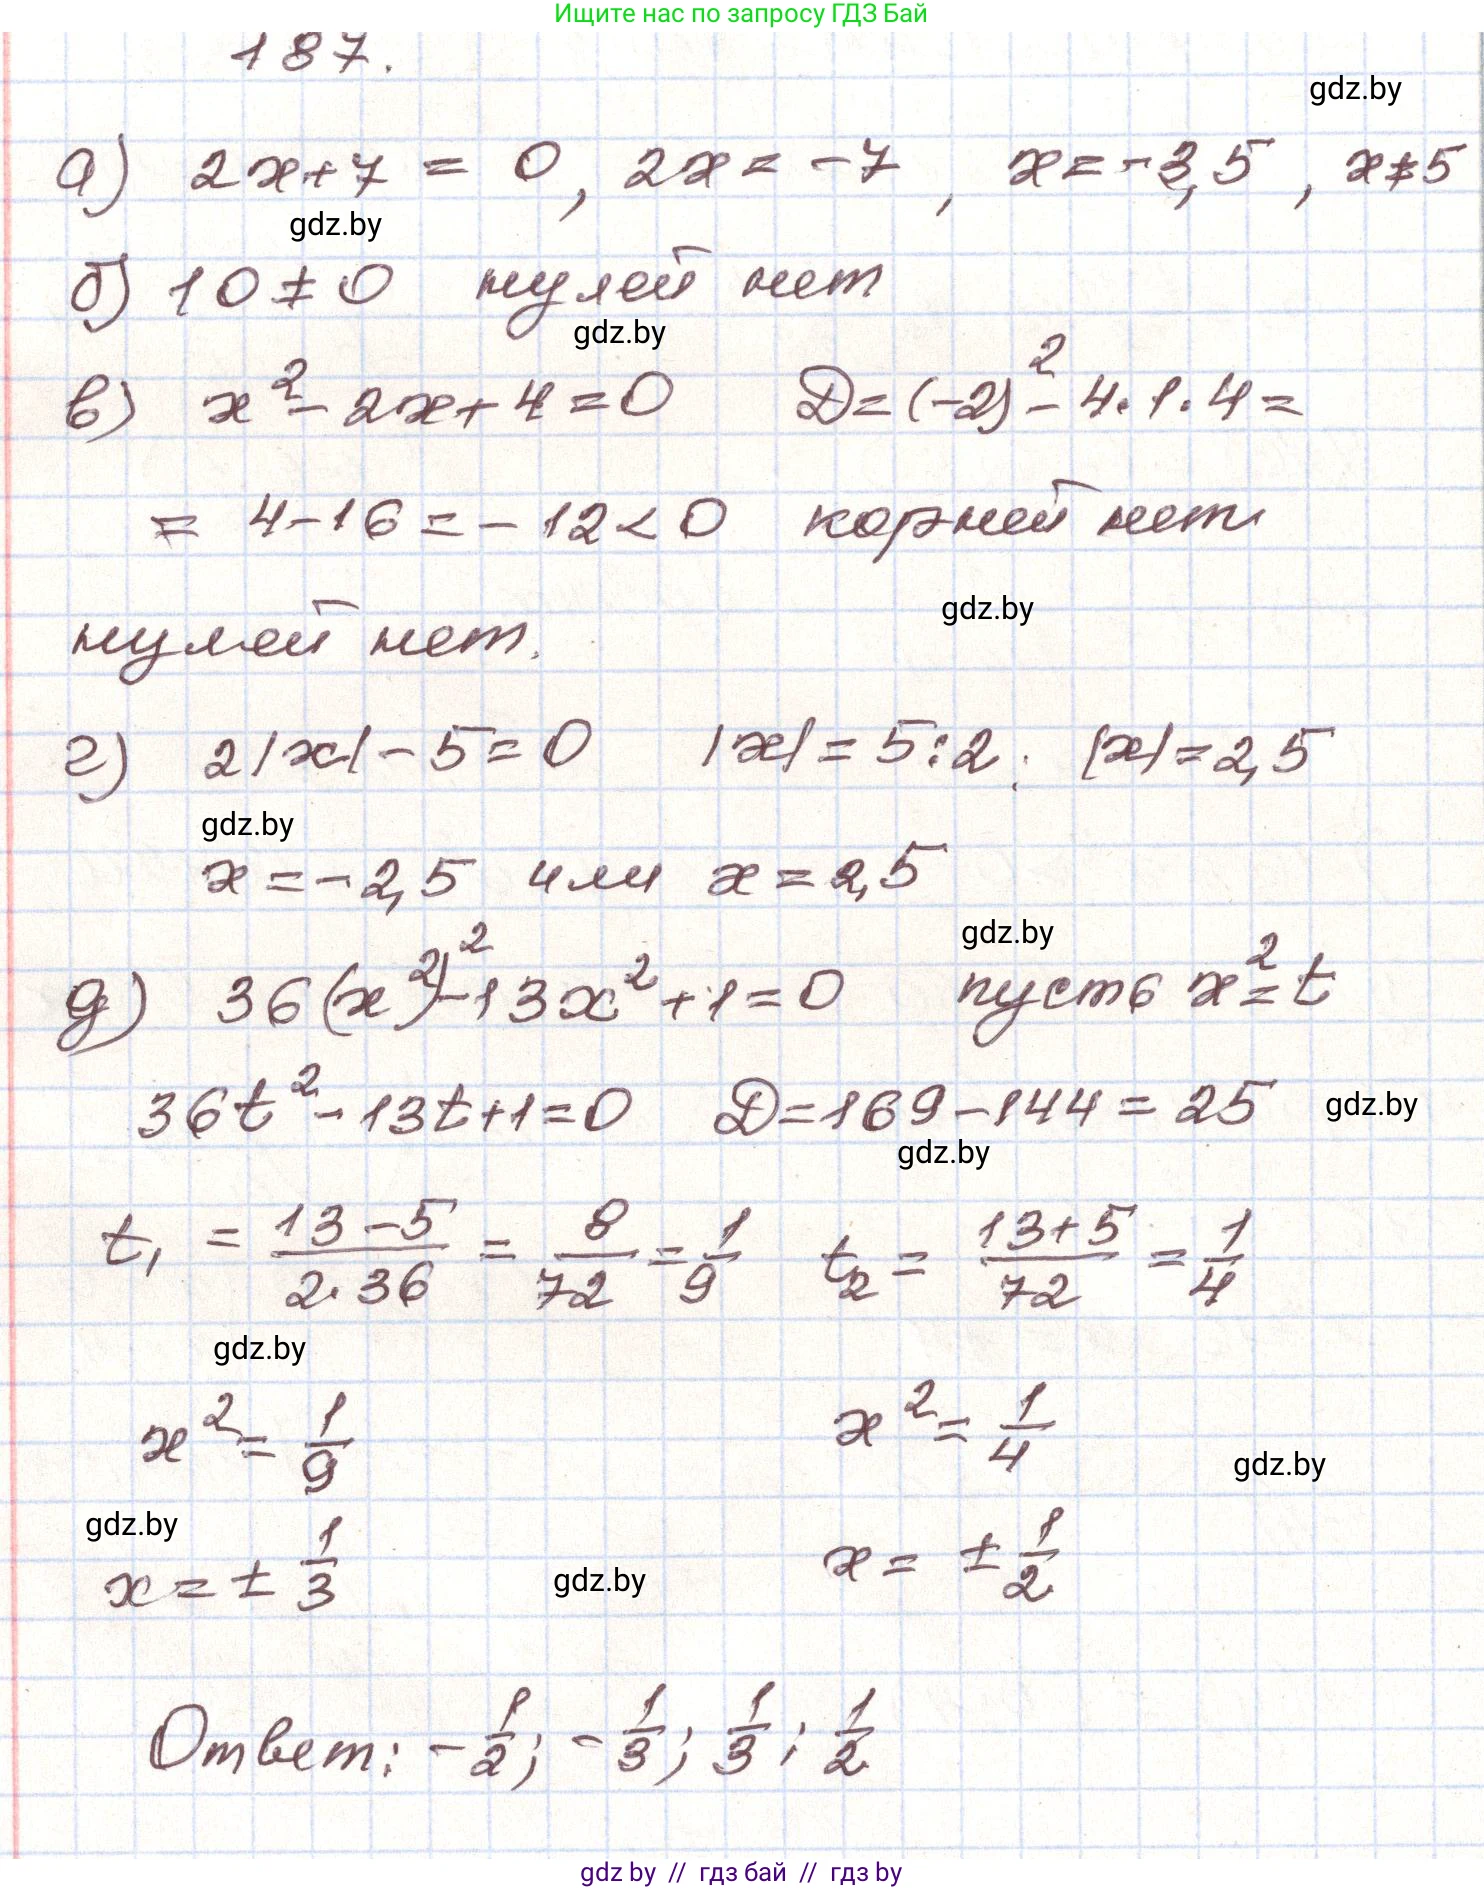 Ищите нас по запросу ГДЗ Бай
187.
gdz.by
а) 2x+7 = 0, 2x = -7, x = -3,5, x≠5
gdz.by
б) 10 ≠ 0 нулей нет
gdz.by
в) x² - 2x + 4 = 0 D = (-2)² - 4·1·4 =
= 4 - 16 = -12 < 0 корней нет
gdz.by
нулей нет.
г) 2|x| - 5 = 0 |x| = 5:2; |x| = 2,5
gdz.by
x = -2,5 или x = 2,5
gdz.by
д) 36(x²)² - 13x² + 1 = 0 пусть x² = t
36t² - 13t + 1 = 0 D = 169 - 144 = 25 gdz.by
gdz.by
t₁ = (13-5)/(2·36) = 8/72 = 1/9 t₂ = (13+5)/72 = 1/4
gdz.by
x² = 1/9 x² = 1/4
gdz.by
gdz.by
x = ± 1/3 x = ± 1/2
gdz.by
Ответ: -1/2; -1/3; 1/3; 1/2
gdz by // гдз бай // гдз by